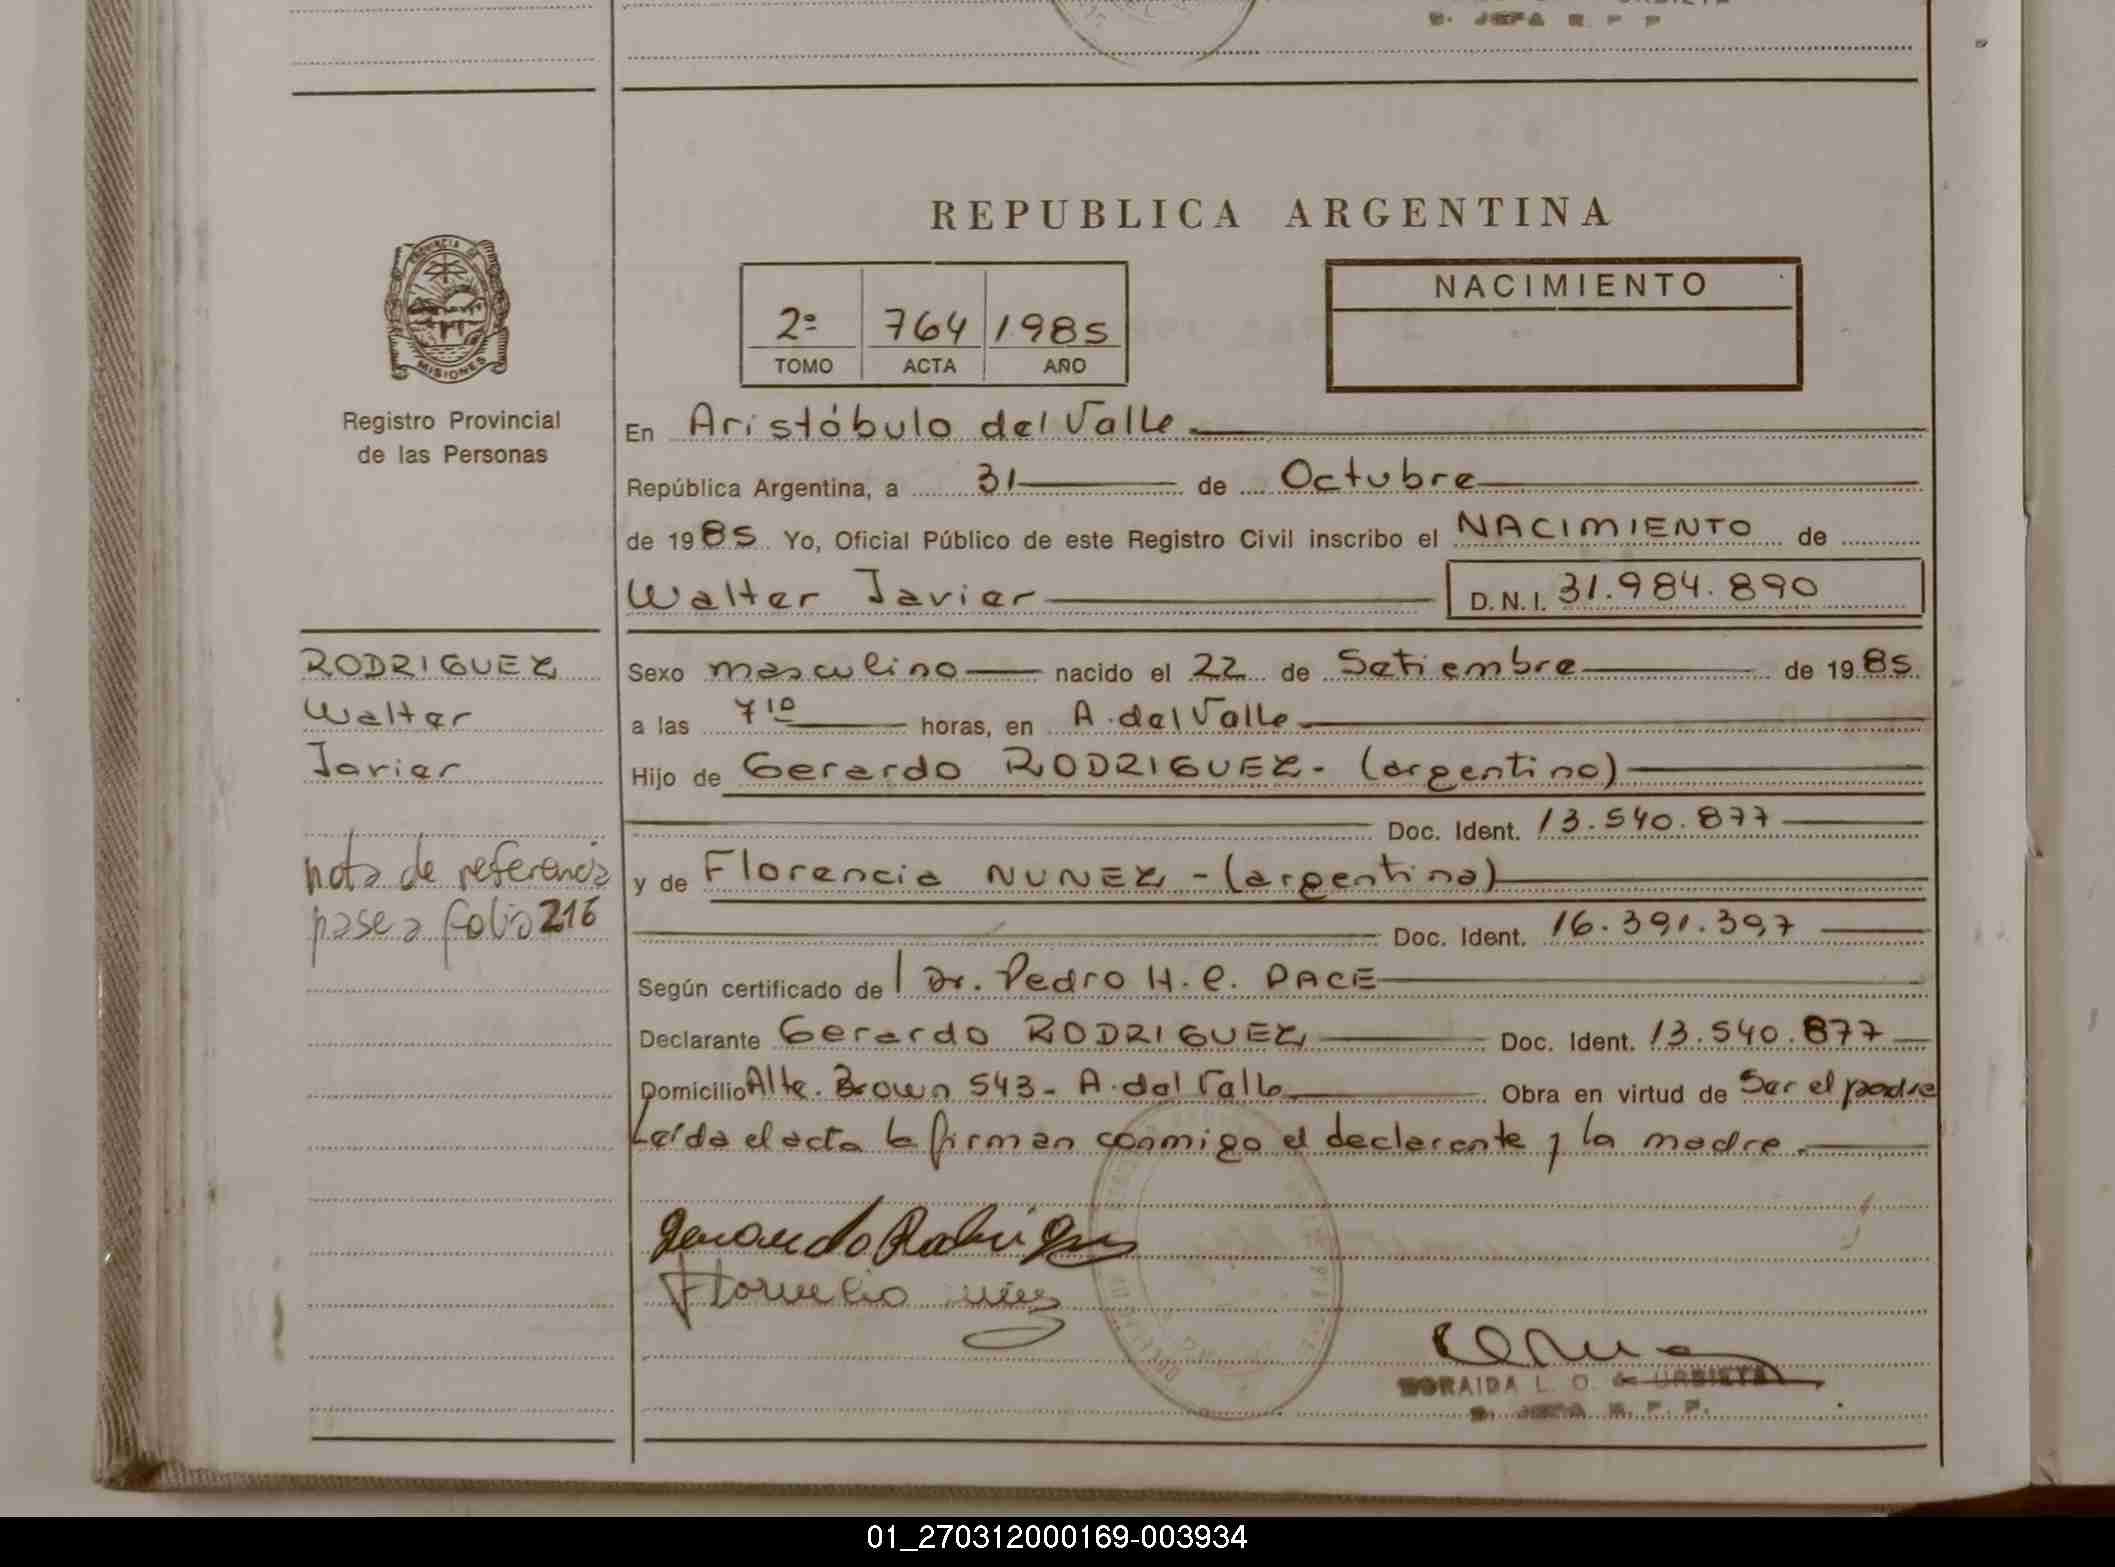 S. JEFA R. P. P.
REPUBLICA ARGENTINA
PROVINCIA DE MISIONES
Registro Provincial
de las Personas
2º 764 1985
TOMO ACTA AÑO
NACIMIENTO
En Aristóbulo del Valle
República Argentina, a 31 de Octubre
de 1985 Yo, Oficial Público de este Registro Civil inscribo el NACIMIENTO de
Walter Javier D.N.I. 31.984.890
RODRIGUEZ
Walter
Javier
nota de referencia
pase a folio 216
Sexo masculino nacido el 22 de Setiembre de 1985
a las 7 10 horas, en A. del Valle
Hijo de Gerardo RODRIGUEZ - (argentino)
Doc. Ident. 13.540.877
y de Florencia NUNEZ - (argentina)
Doc. Ident. 16.391.397
Según certificado de l Dr. Pedro H. C. PACE
Declarante Gerardo RODRIGUEZ Doc. Ident. 13.540.877
Domicilio Alte. Brown 543 - A. del Valle Obra en virtud de Ser el padre
Leída el acta la firman conmigo el declarante y la madre.
Gerardo Rodriguez
ZORAIDA L. O. de URBIETA
S. JEFA R. P. P.
01_270312000169-003934